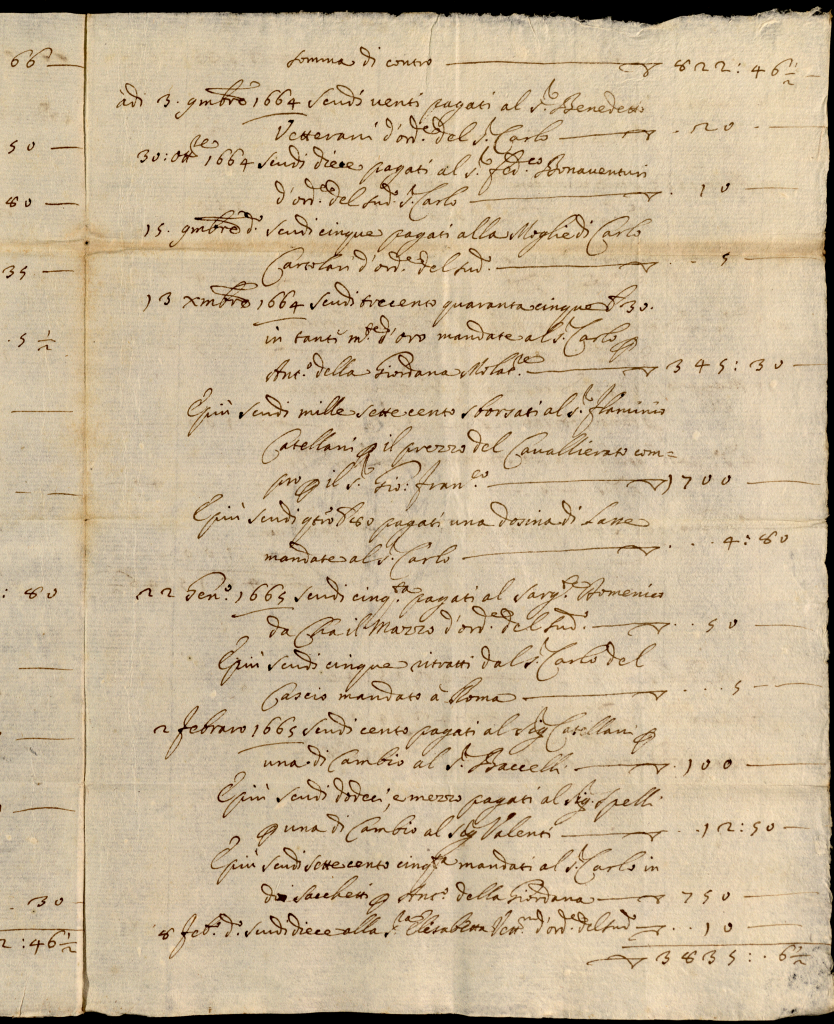 66 —
50 —
80 —
35 —
. 5 ½
: 80
. 30
2 : 46½
somma di contro — ▽ 822 : 46½ —
àdi 3. 9mbre 1664 scudi venti pagati al S.r Benedetto
Vetterani d'ord.e del S.r Carlo — . 20 —
30: ott.re 1664 scudi diece pagati al S.r Fed.co Bonaventuri
d'ord.e del sud.o S.r Carlo — . . 10 —
15. 9mbre d.o scudi cinque pagati alla Moglie di Carlo
Cartolari d'ord.e del sud.o — . . 5 —
13 Xmbre 1664 scudi trecento quaranta cinque b 30.
in tanti m.te d'oro mandate al S.r Carlo p
Ant.o della Giordana Molat.re — 345 : 30 —
E più scudi mille sette cento sborsati al S.r Flaminio
Catellani p il prezzo del Cavallierato com=
pro p il S.r Gio: Fran.co — 1700 —
E più scudi qtro b 80 pagati una dosina di Lame
mandate al S.r Carlo — . . . 4 : 80
22 Gen.o 1665 scudi cinq.ta pagati al Sarg.te Domenico
da Cha il Mazzo d'ord.e del sud.o — . . 50 —
E più scudi cinque ritratti dal S.r Carlo del
Cascio mandato à Roma — . . . 5 —
2 Febraro 1665 scudi cento pagati al Sig Catellani p
una di Cambio al S.r Baccelli — . 100 —
E più scudi dodeci, e mezzo pagati al Sig. Spelli
p una di Cambio al Sig Valenti — . . 12 : 50 —
E più scudi sette cento cinq.ta mandati al S.r Carlo in
doi sacchetti p Ant.o della Giordana — 750 —
8 Feb.o d.o scudi diece alla S.ra Elisabetta Vett.ni d'ord.e del sud.o — . . 10 —
▽ 3835 : . 6½